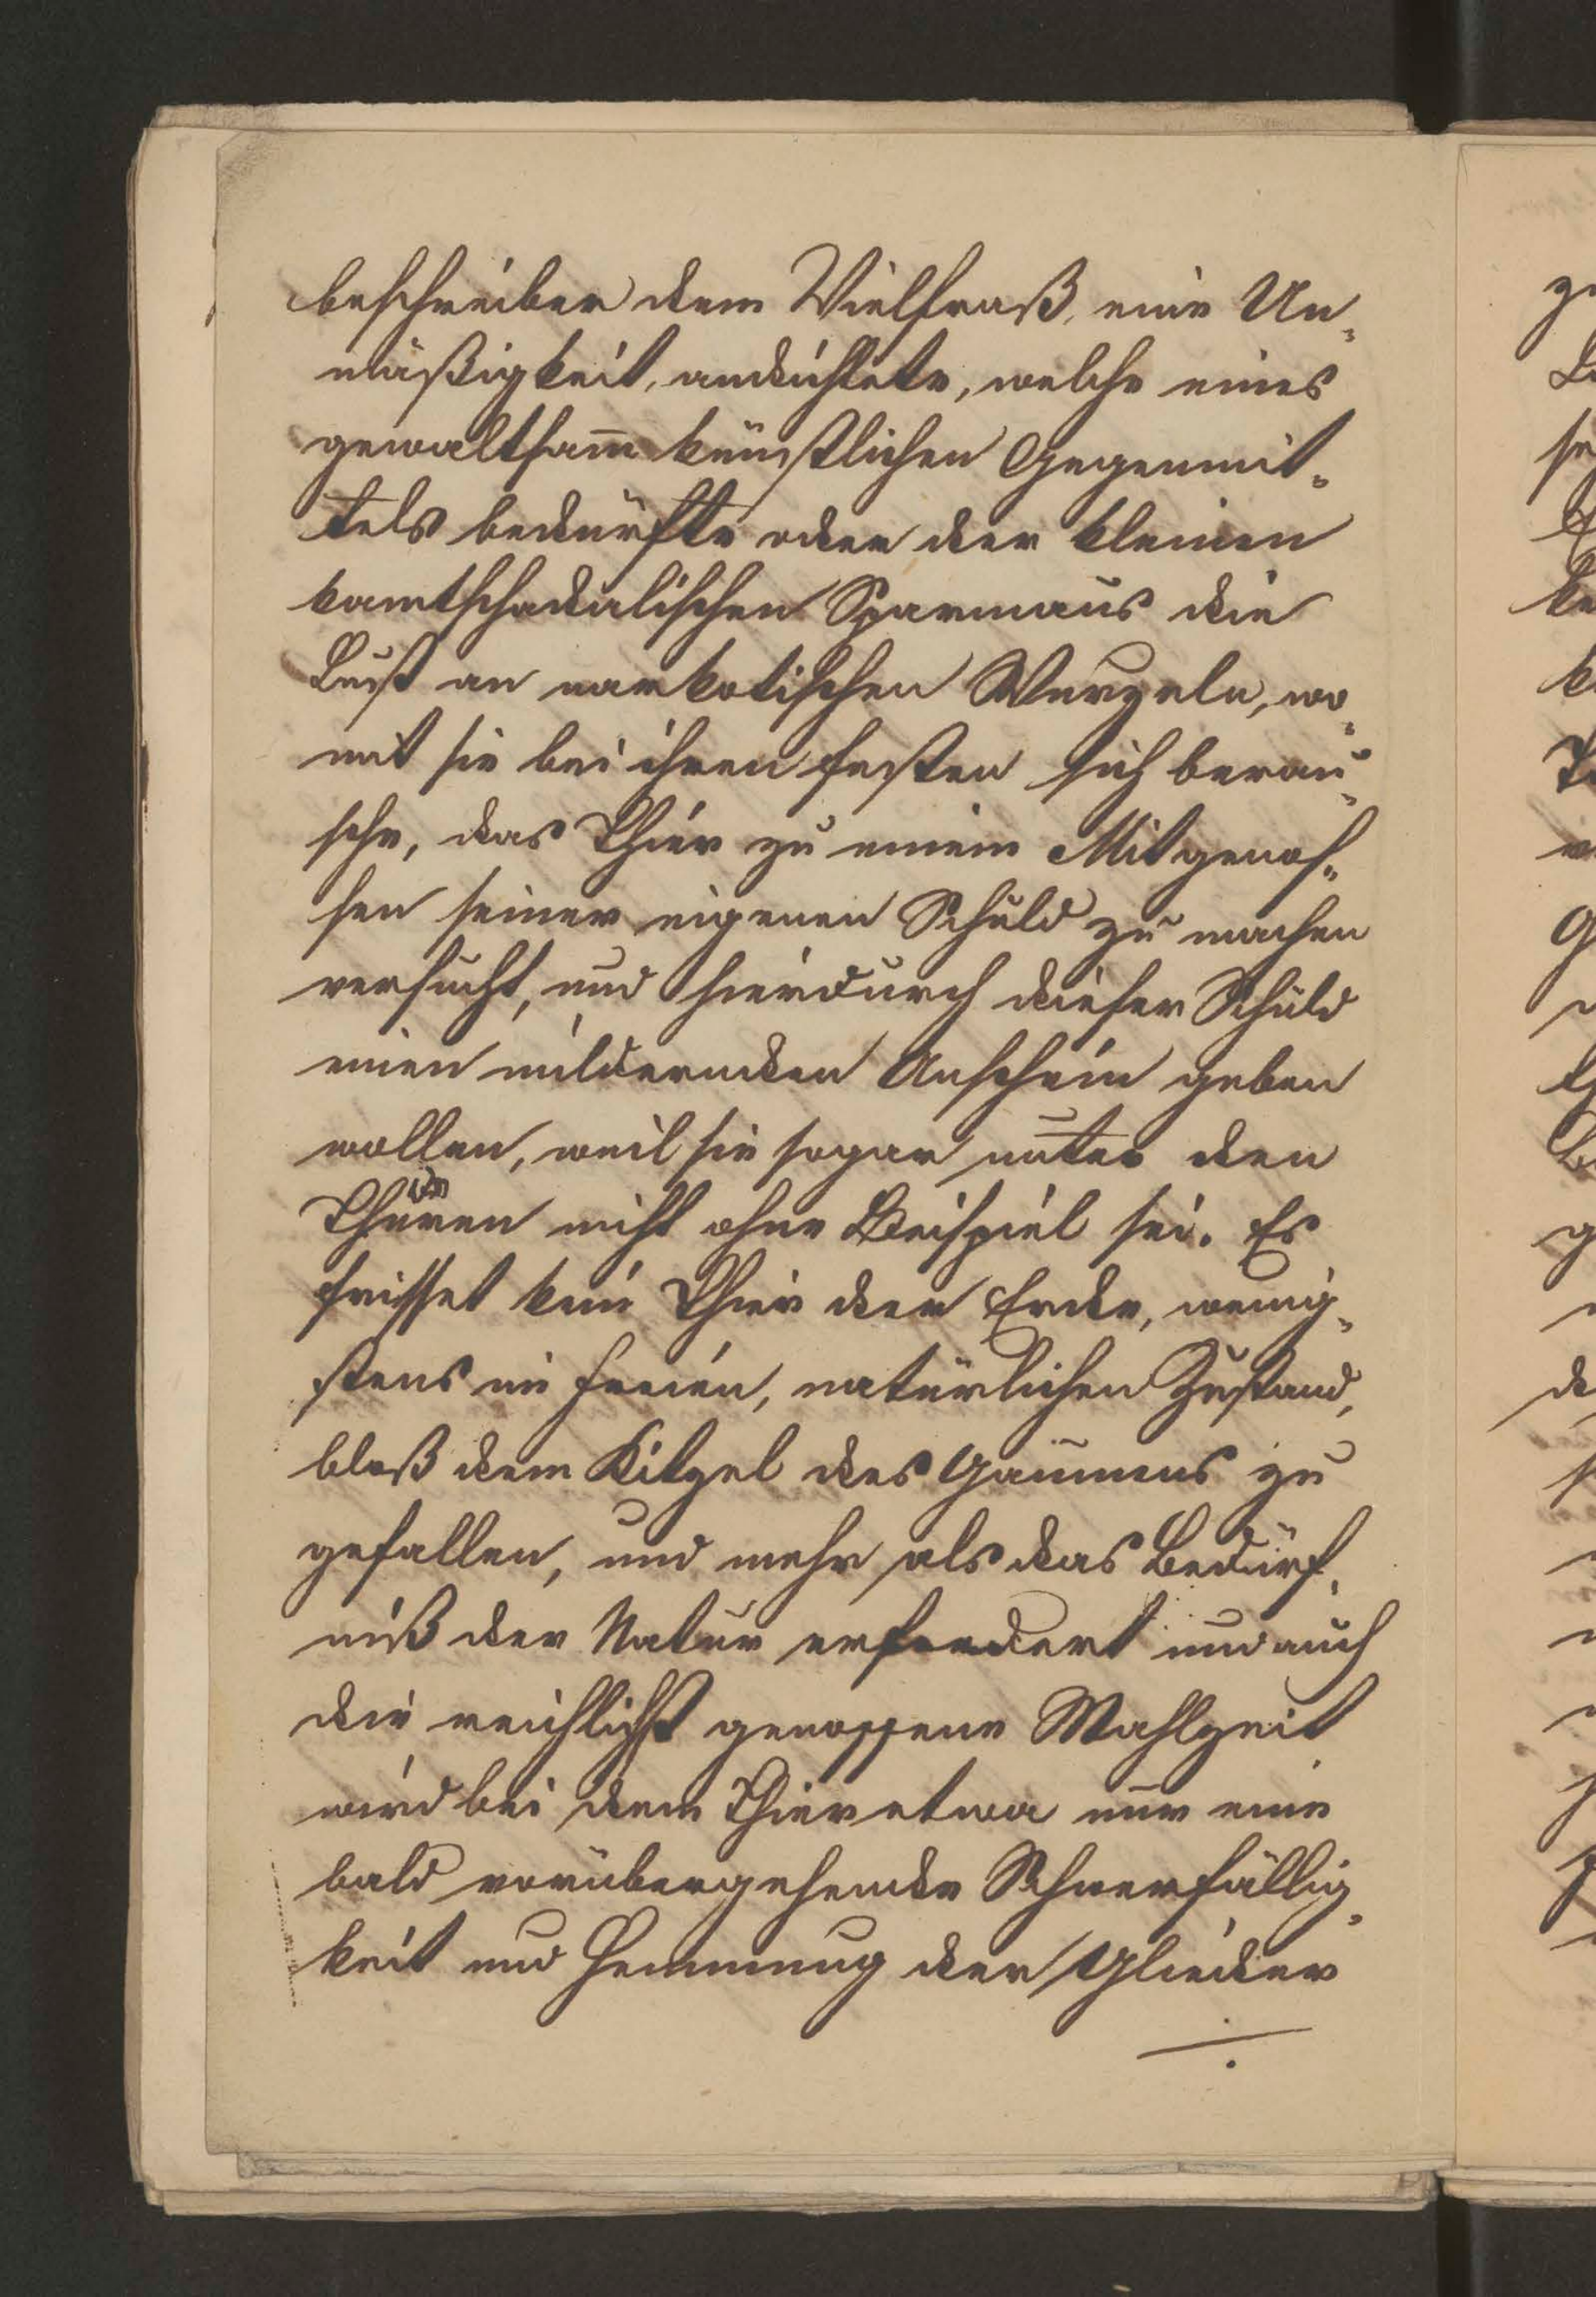 beschreiber dem Vielfraß, eine Un-
mäßigkeit, andichtete, welche eines
gewaltsam künstlichen Gegenmit-
tels bedürfte oder der kleinen
kamtschadalischen Sparmaus die
Lust an narkotischen Wurzeln, wo-
mit sie bei ihren Festen sich berau-
sche, das Thier zu einem Mitgenos-
sen seiner eigenen Schuld zu machen
versucht, und hierdurch dieser Schuld
einen mildernden Anschein geben
wollen, weil sie sogar unter den
Thieren nicht ohne Beispiel sei. Es
frisset kein Thier der Erde, wenig-
stens im freien, natürlichen Zustand,
bloß dem Kitzel des Gaumens zu
gefallen, und mehr als das Bedürf-
niß der Natur erfordert und auch
die reichlichst genossene Mahlzeit
wird bei dem Thier etwa nur eine
bald vorübergehende Schwerfällig-
keit und Hemmung der Glieder